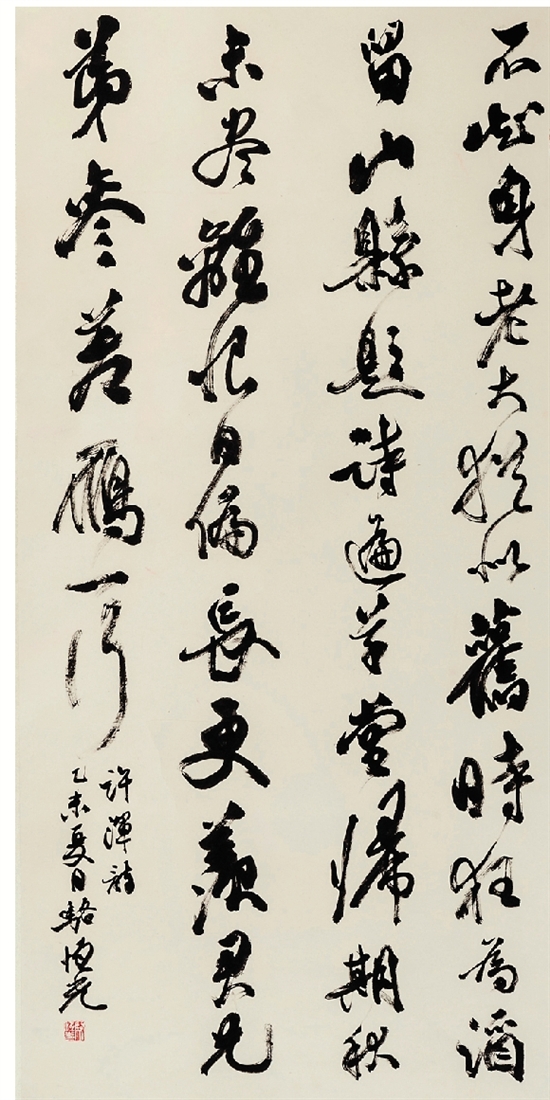 不身老大猶似舊時狂為酒
留山縣題詩遍草堂歸期秋
未盡離恨日偏長更羨君兄
弟參差鴈一行
許渾詩
乙未夏日駱恒光